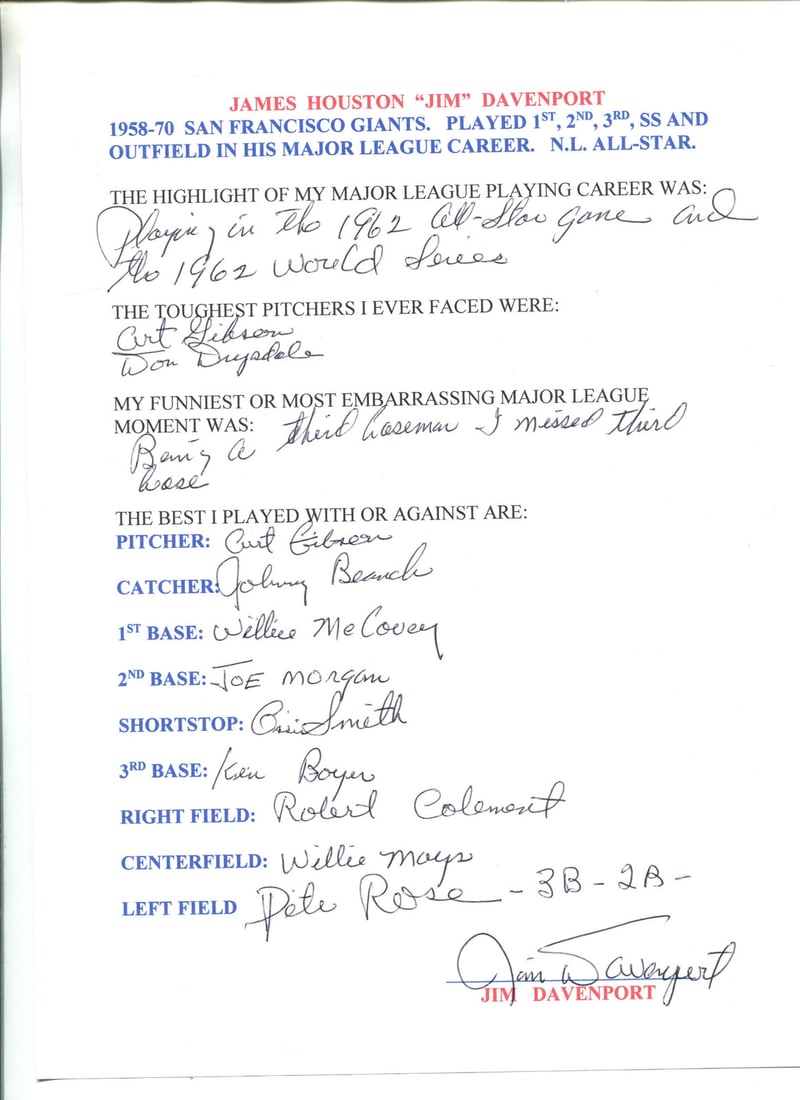 JAMES HOUSTON “JIM” DAVENPORT
1958-70 SAN FRANCISCO GIANTS. PLAYED 1ST, 2ND, 3RD, SS AND
OUTFIELD IN HIS MAJOR LEAGUE CAREER. N.L. ALL-STAR.
THE HIGHLIGHT OF MY MAJOR LEAGUE PLAYING CAREER WAS:
Playing in the 1962 All-Star game and
the 1962 World Series
THE TOUGHEST PITCHERS I EVER FACED WERE:
Curt Gibson
Don Drysdale
MY FUNNIEST OR MOST EMBARRASSING MAJOR LEAGUE
MOMENT WAS:
Being a third baseman I missed third
base
THE BEST I PLAYED WITH OR AGAINST ARE:
PITCHER: Curt Gibson
CATCHER: Johnny Beanch
1ST BASE: Willie McCovey
2ND BASE: JOE Morgan
SHORTSTOP: Smith
3RD BASE: Ken Boyer
RIGHT FIELD: Robert Colement
CENTERFIELD: Willie Mays
LEFT FIELD Pete Rose - 3B - 2B -
Jim Davenport
JIM DAVENPORT